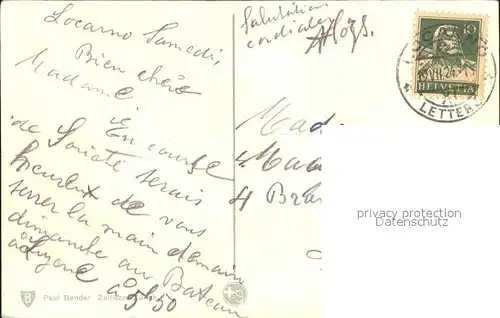 Locarno Samedi
Bien chère
Madame
En course
de Société serais
heureux de vous
serrer la main demain
dimanche au Bateau
à 5h50
Salutations
cordiales
Mad
4
4
10
HELVETIA
LETTER
privacy protection
Datenschutz
Paul Bender